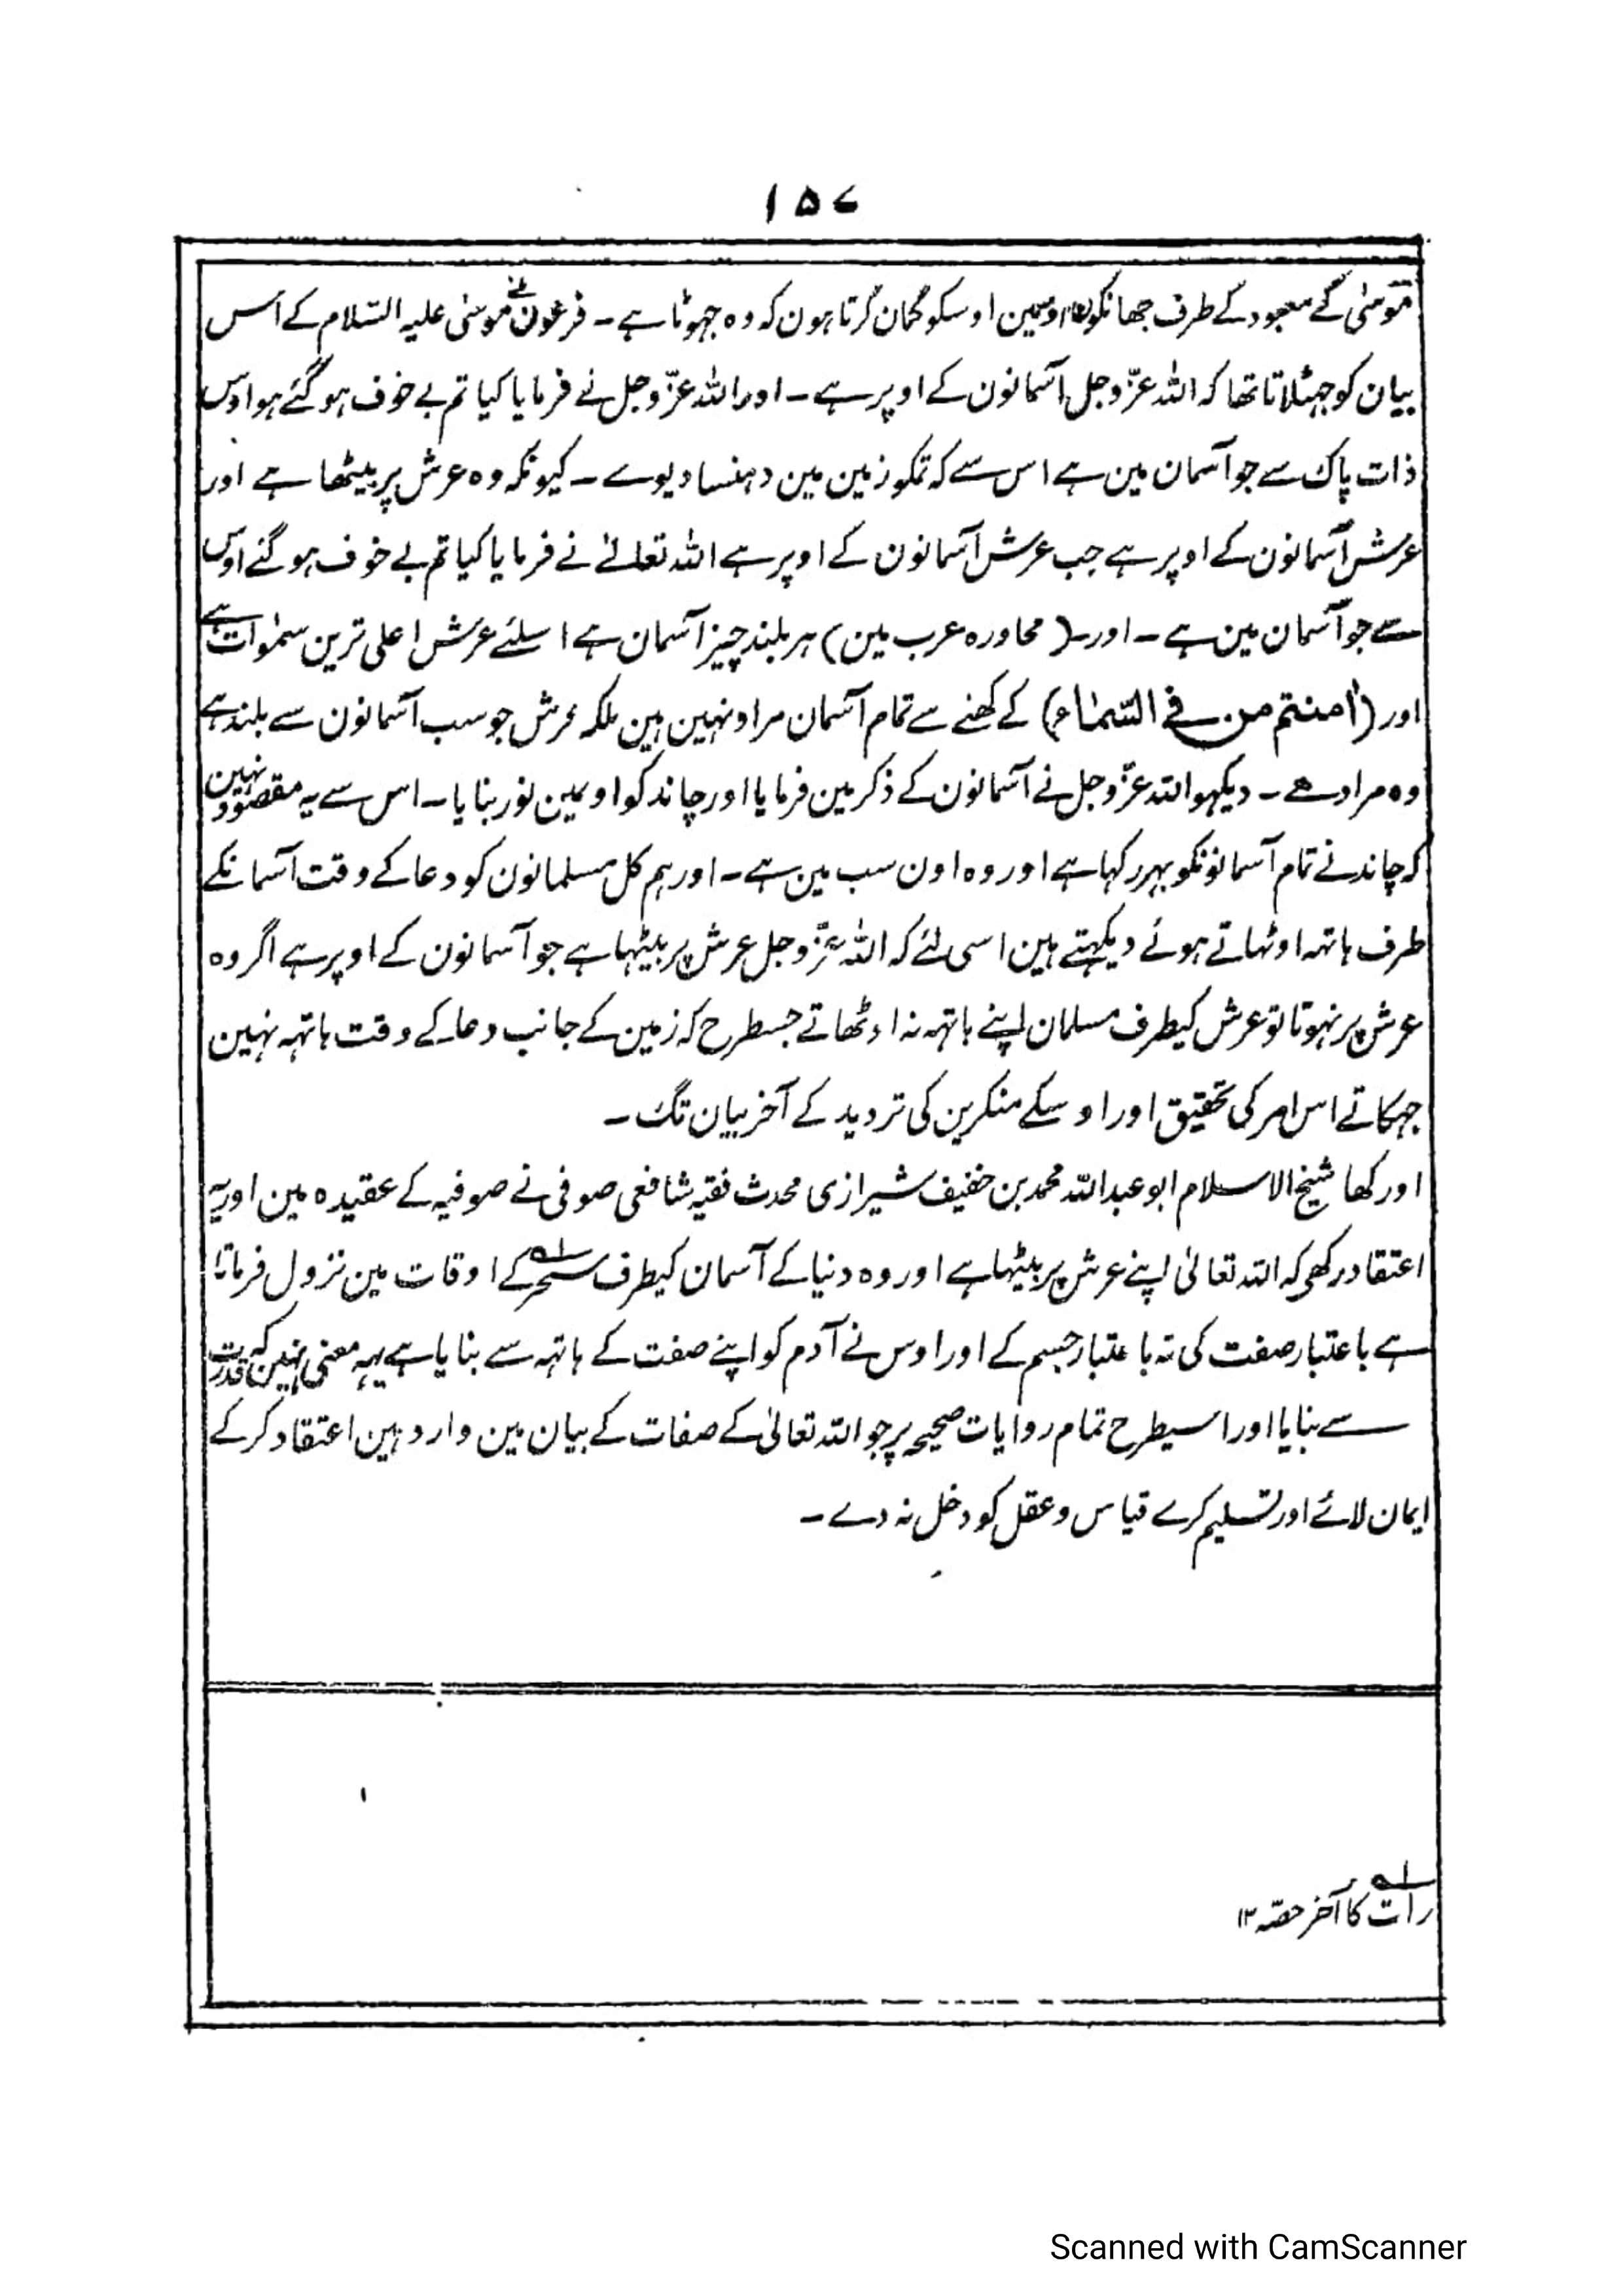 ۱۵۷
موسیٰ کے معبود کے طرف جھانکوں اور مین اوسکو گمان کرتا ہون کہ وہ جہوٹا ہے ۔ فرعون نے موسیٰ علیہ السّلام کے اس
بیان کو جہٹلاتا تھا کہ اللہ عزّوجل آسمانون کے اوپر ہے ۔ اور اللہ عزّوجل نے فرمایا کیا تم بے خوف ہو گئے ہو اوس
ذات پاک سے جو آسمان مین ہے اس سے کہ تمکو زمین مین دہنسا دیوے ۔ کیونکہ وہ عرش پر بیٹھا ہے اور
عرش آسمانون کے اوپر ہے جب عرش آسمانون کے اوپر ہے اللہ تعالےٰ نے فرمایا کیا تم بے خوف ہو گئے اوس
سے جو آسمان مین ہے ۔ اور ( محاورہ عرب مین ) ہر بلند چیز آسمان ہے اسلئے عرش اعلی ترین سمٰوات ہے
اور (أمنتم من فے السّمآء) کے کھنے سے تمام آسمان مراد نہین ہین بلکہ عرش جو سب آسمانون سے بلند ہے
وہ مراد ہے ۔ دیکہو اللہ عزّوجل نے آسمانون کے ذکر مین فرمایا اور چاند کو اونمین نور بنایا ۔ اس سے یہ مقصود نہین
کہ چاند نے تمام آسمانونکو بہر رکہا ہے اور وہ اون سب مین ہے ۔ اور ہم کل مسلمانون کو دعا کے وقت آسمانکے
طرف ہاتہہ اوٹہاتے ہوئے دیکہتے ہین اسی لئے کہ اللہ عزّوجل عرش پر بیٹہا ہے جو آسمانون کے اوپر ہے اگر وہ
عرش پر نہوتا تو عرش کیطرف مسلمان اپنے ہاتہہ نہ اوٹھاتے جسطرح کہ زمین کے جانب دعا کے وقت ہاتہہ نہین
جہکاتے اس امر کی تحقیق اور اوسکے منکرین کی تردید کے آخر بیان تک ۔
اور کھا شیخ الاسلام ابو عبد اللہ محمد بن خفیف شیرازی محدث فقیہ شافعی صوفی نے صوفیہ کے عقیدہ مین اور یہ
اعتقاد رکھی کہ اللہ تعالیٰ اپنے عرش پر بیٹہا ہے اور وہ دنیا کے آسمان کیطرف سحر<sup>لہ</sup> کے اوقات مین نزول فرماتا
ہے باعتبار صفت کی نہ باعتبار جسم کے اور اوس نے آدم کو اپنے صفت کے ہاتہہ سے بنایا ہے یہہ معنی نہین کہ قدرت
سے بنایا اور اسیطرح تمام روایات صحیحہ پر جو اللہ تعالیٰ کے صفات کے بیان مین وارد ہین اعتقاد کر کے
ایمان لائے اور تسلیم کرے قیاس و عقل کو دخل نہ دے ۔
لہ
رات کا آخر حصّہ ۱۲
Scanned with CamScanner